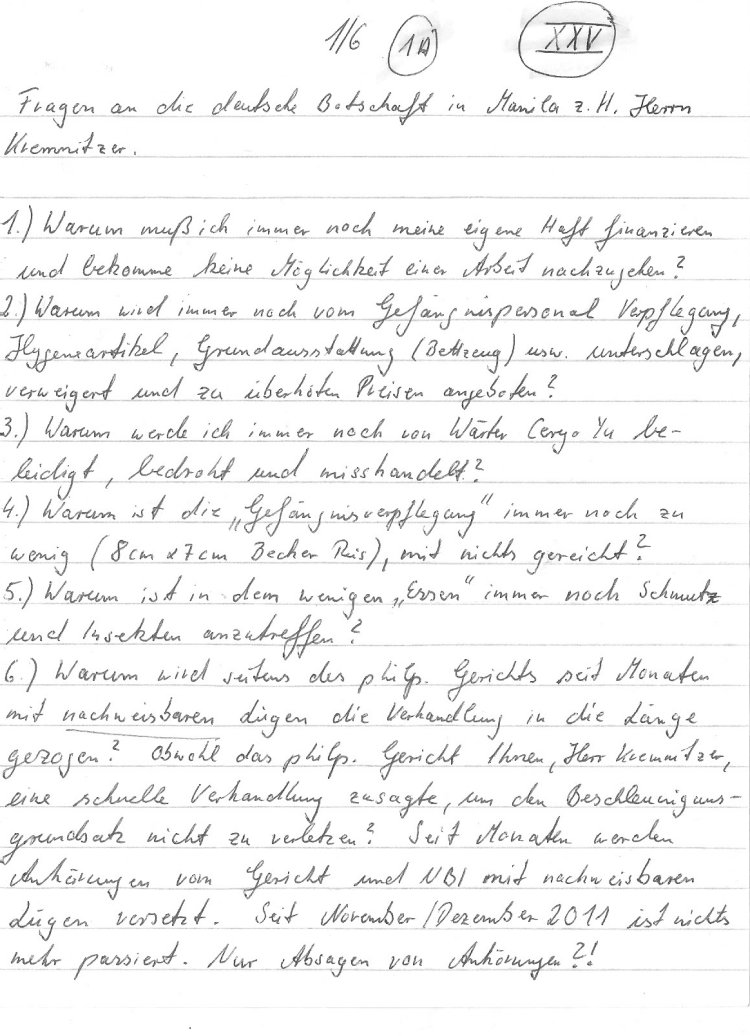 1/6 1A XXV
Fragen an die deutsche Botschaft in Manila z. H. Herrn
Kremnitzer.
1.) Warum muß ich immer noch meine eigene Haft finanzieren
und bekomme keine Möglichkeit einer Arbeit nachzugehen?
2.) Warum wird immer noch vom Gefängnispersonal Verpflegung,
Hygeneartikel, Grundausstattung (Bettzeug) usw. unterschlagen,
verweigert und zu überhöten Preisen angeboten?
3.) Warum werde ich immer noch von Wärter Ceryo Yu be-
leidigt, bedroht und misshandelt?
4.) Warum ist die „Gefängnisverpflegung" immer noch zu
wenig (8cm x 7cm Becher Reis), mit nichts gereicht?
5.) Warum ist in dem wenigen „Essen" immer noch Schmutz
und Insekten anzutreffen?
6.) Warum wird seitens des philp. Gerichts seit Monaten
mit nachweisbaren Lügen die Verhandlung in die Länge
gezogen? Obwohl das philp. Gericht Ihnen, Herr Kremnitzer,
eine schnelle Verhandlung zusagte, um den Beschleuniguns-
grundsatz nicht zu verletzen? Seit Monaten werden
Anhörungen vom Gericht und NBI mit nachweisbaren
Lügen versetzt. Seit November/Dezember 2011 ist nichts
mehr passiert. Nur Absagen von Anhörungen?!